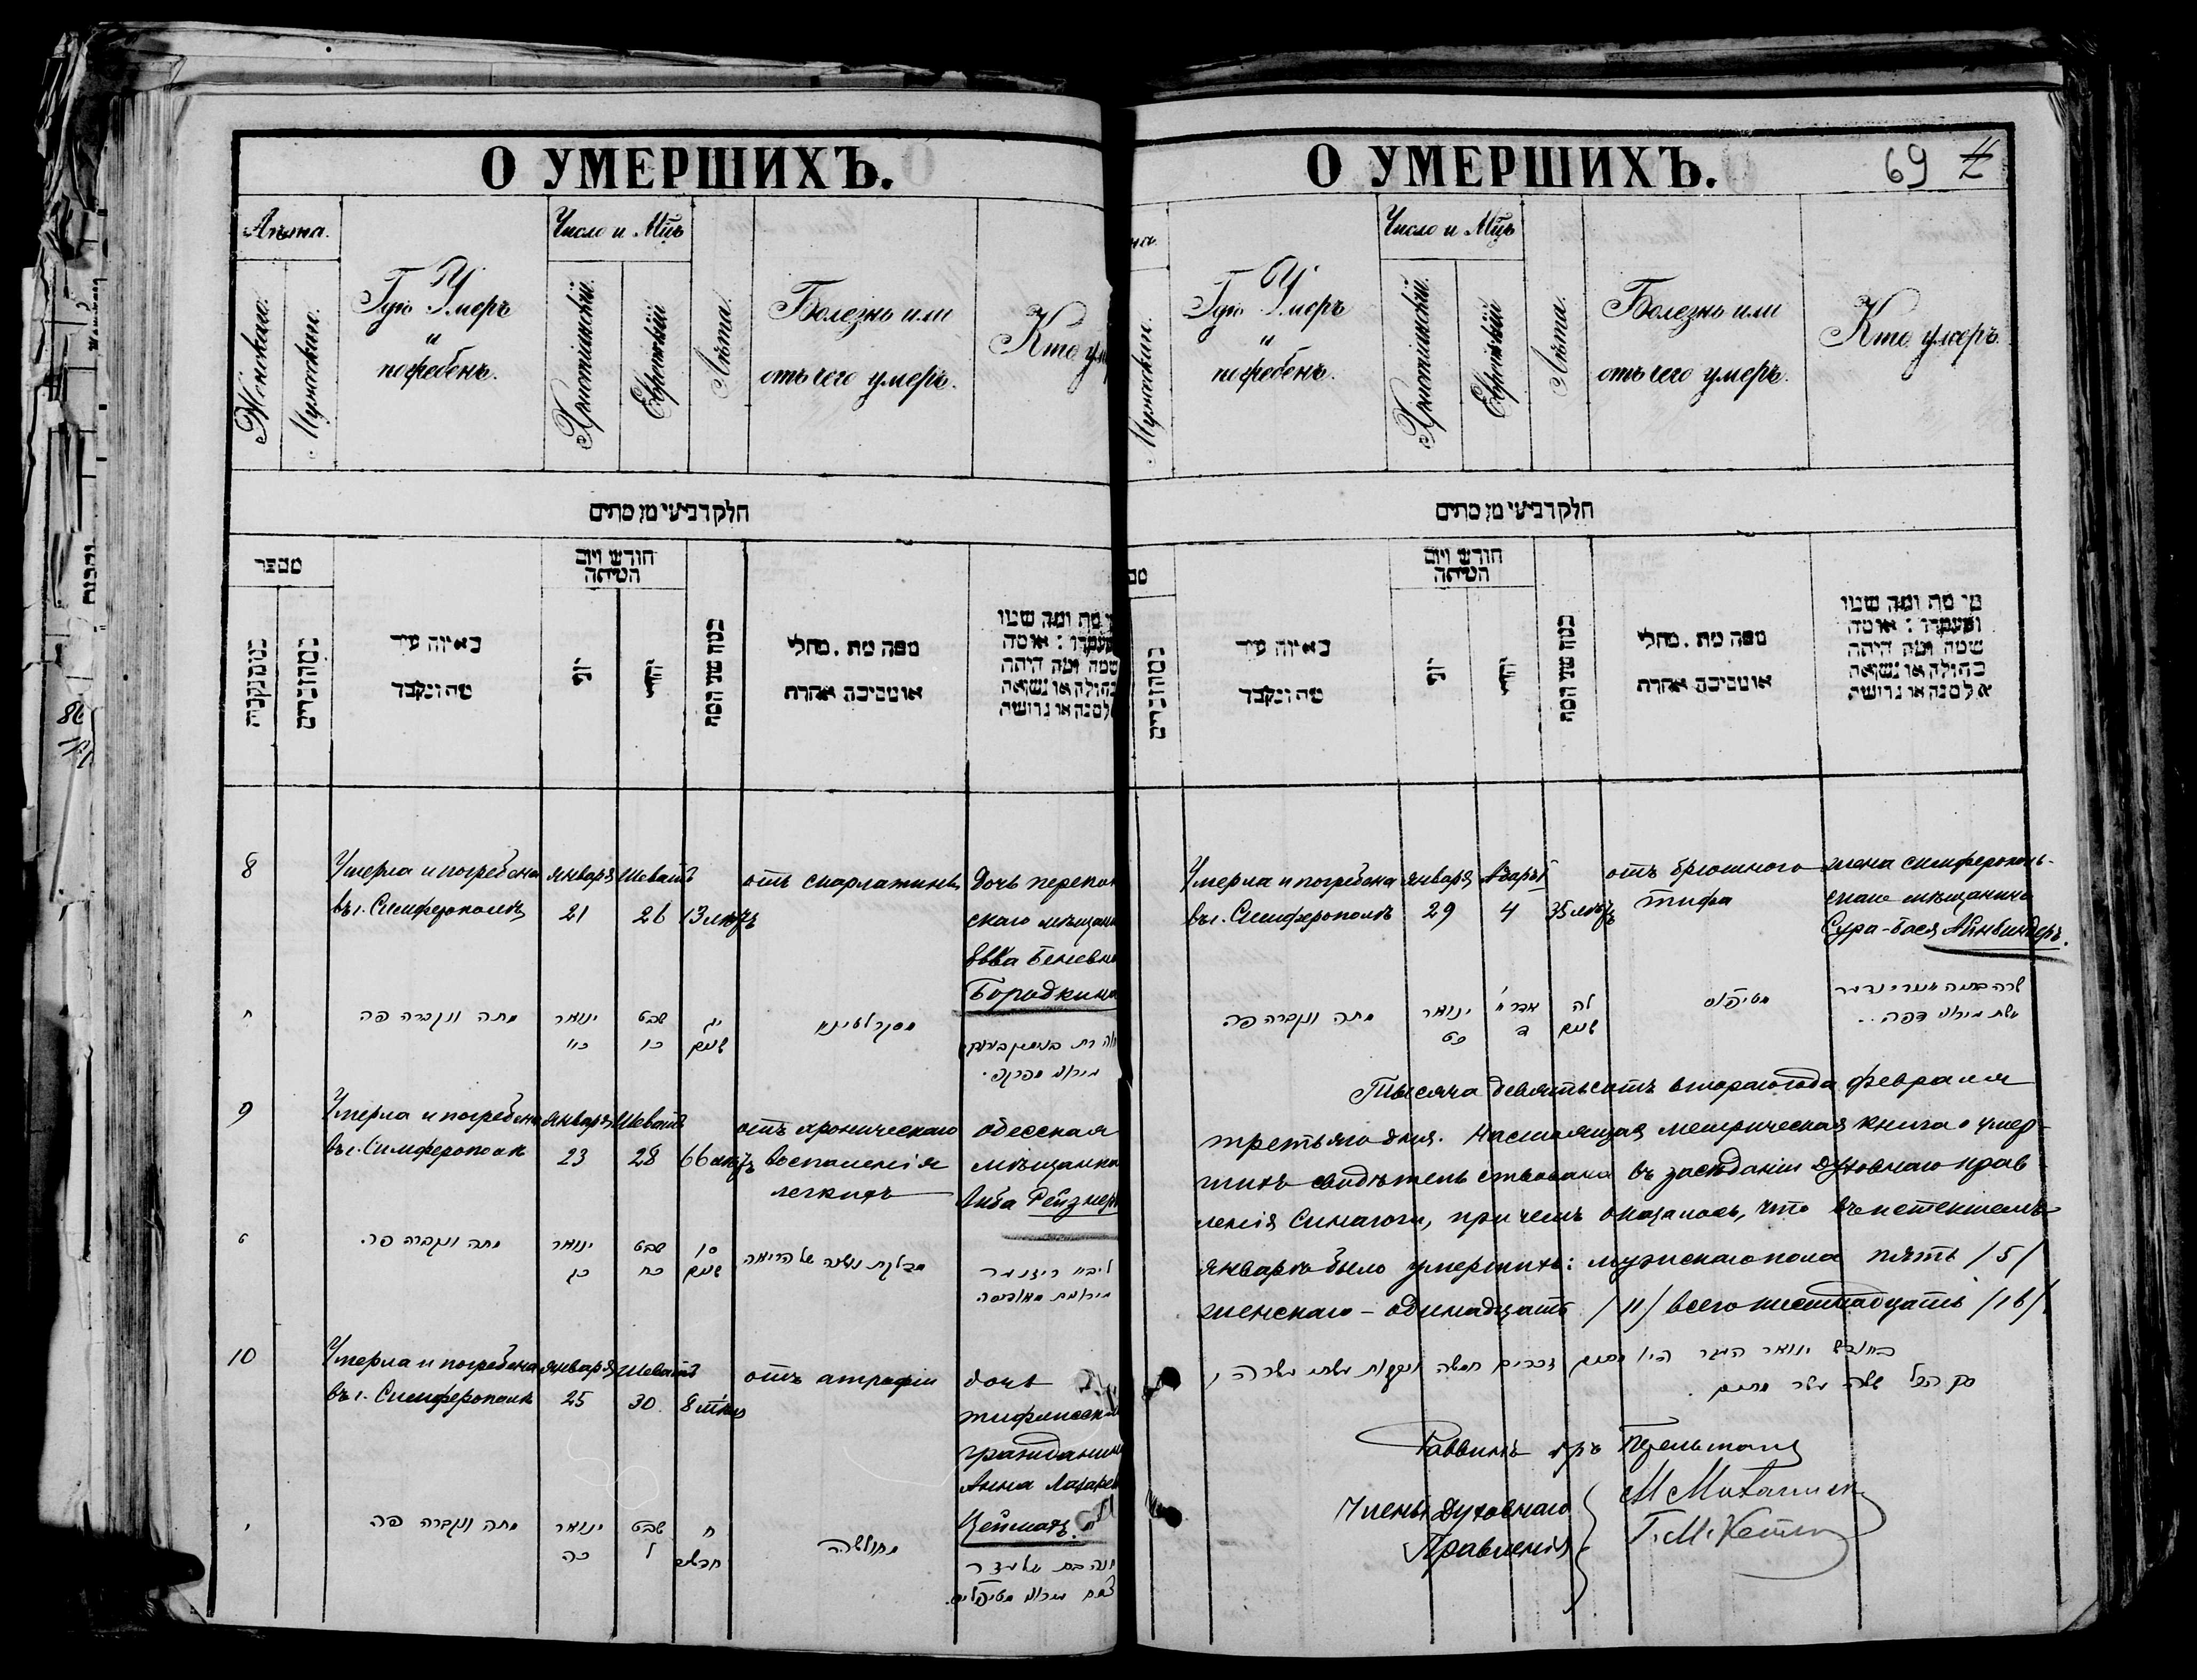 О УМЕРШИХЪ.
Лѣта.
Женскаго.
Мужскаго.
Гдѣ Умеръ
и
погребенъ.
Число и Мцъ
Христіанскій.
Еврейскій
Лѣта.
Болезнь или
отъ чего умеръ.
Кто ум
חלק רביעי מן מתים
מספר
מהנקבות
מהזכרים
באיזה עיר
מת ונקבר
חודש ויום
המיתה
כמה שני המת
ממה מת. מחלי
או מסיבה אחרת
מי מת ומה שמו
ומעמדו: או מה
שמה ומה היתה
בתולה או נשואה
אלמנה או גרושה
8
Умерла и погребена
въ г. Симферополѣ
января
21
Шеватъ
26
13 лѣтъ
отъ скарлатины
дочь перекоп
скаго мѣщани
Евва Бенevна
Бородкина
ח
מתה ונקברה פה
ינואר
כא
שבט
כו
יג
שנים
מסקרלטינא
9
Умерла и погребена
въ г. Симферополѣ
января
23
Шеватъ
28
66 лѣтъ
отъ хроническаго
воспаленія
легкихъ
одесская
мѣщанка
Люба Рейзнеръ
ט
מתה ונקברה פה.
ינואר
כג
שבט
כח
סו
שנים
מדלקת נושנה של הריאה
ליבא רייזנער
10
Умерла и погребена
въ г. Симферополѣ
января
25
Шеватъ
30.
8 м‑цевъ
отъ атрофіи
дочь
тифлисск
гражданин
Анна Лазарев
Цейтлинъ.
י
מתה ונקברה פה
ינואר
כה
שבט
ל
ח
חדשים
מחולשה
О УМЕРШИХЪ.
69
Мужскаго.
Гдѣ Умеръ
и
погребенъ.
Число и Мцъ
Христіанскій.
Еврейскій
Лѣта.
Болезнь или
отъ чего умеръ.
Кто умеръ.
חלק רביעי מן מתים
מהזכרים
באיזה עיר
מת ונקבר
חודש ויום
המיתה
כמה שני המת
ממה מת. מחלי
או מסיבה אחרת
מי מת ומה שמו
ומעמדו: או מה
שמה ומה היתה
בתולה או נשואה
אלמנה או גרושה
Умерла и погребена
въ г. Симферополѣ
января
29
Адаръ I
4
35 лѣтъ
отъ брюшного
тифа
жена симферополь-
скаго мѣщанина
Сура-Бася Айнбиндеръ.
מתה ונקברה פה
ינואר
כט
אדר א
ד
לה
שנים
מטיפוס
Тысяча девятьсотъ второго года февраля
третьяго дня. Настоящая метрическая книга о умер-
шихъ свидѣтельствована въ засѣданіи Духовнаго прав
ленія Синагоги, при чемъ оказалось, что въ истекшемъ
январѣ было умершихъ: мужскаго пола пять /5/
женскаго – одинадцать /11/ всего шестнадцать /16/.
בחודש ינואר העבר היו מתים זכרים חמשה ונקבות עשתי עשרה,
סך הכל ששה עשר מתים.
Раввинъ
Члены Духовнаго
Правленія